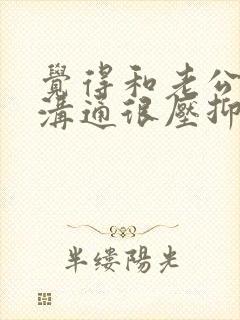 覺得和老公
溝通很壓抑
半缕陽光